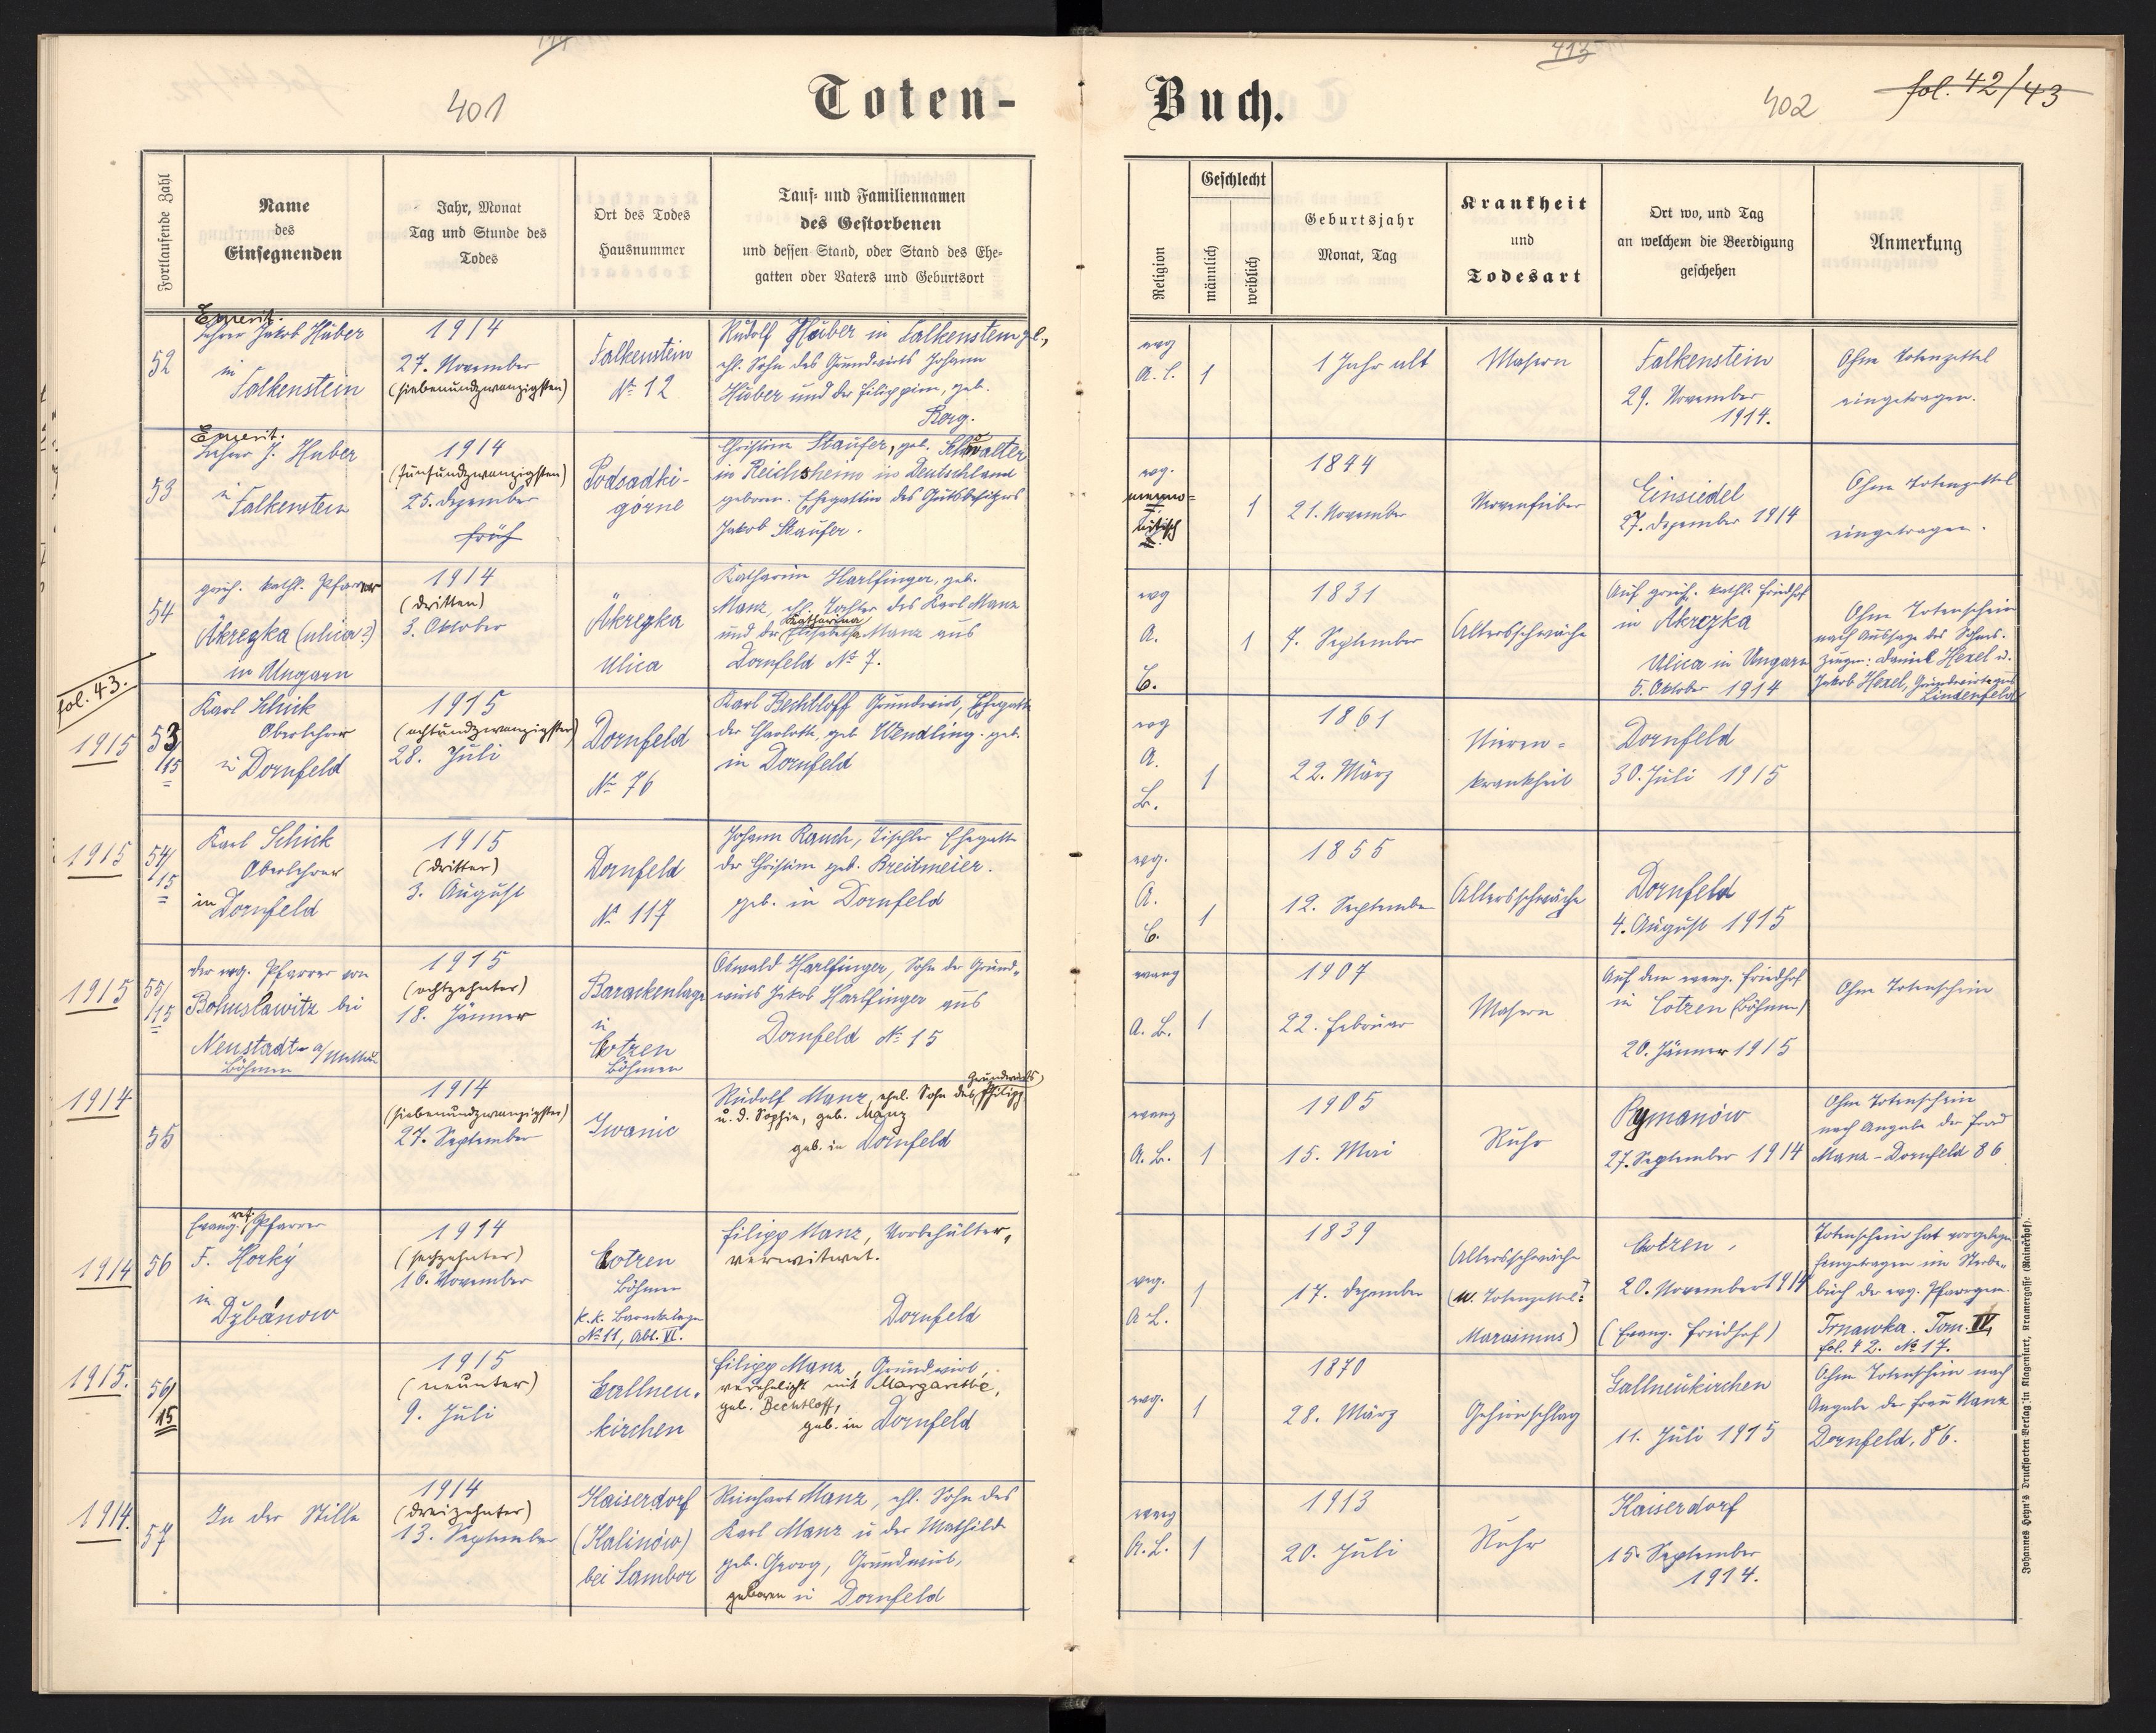 401
Toten-
Fortlaufende Zahl
Name
des
Einsegnenden
Jahr, Monat
Tag und Stunde des
Todes
Ort des Todes
Hausnummer
Tauf- und Familiennamen
des Gestorbenen
und dessen Stand, oder Stand des Ehe-
gatten oder Vaters und Geburtsort
52
Emerit.
Lehrer Jakob Huber
in
Falkenstein
1914
27. November
(siebenundzwanzigsten)
Falkenstein
No 12
Rudolf Huber in Falkenstein
ehl. Sohn des Grundwirts Johann
Huber und der Filippine, geb.
Borg.
53
Emerit.
Lehrer J. Huber
in
Falkenstein
1914
(fünfundzwanzigsten)
25. Dezember
früh
Podsadki-
górne
Christine Staufer, geb.
in Reichsheim in Deutschland
geboren. Ehegattin des Gutsbesitzers
Jakob Staufer.
54
griech. kathl. Pfarrer
Akrezka (ulica?)
in Ungarn
1914
(dritten)
3. Oktober
Akrezka
Ulica
Katharina Harlfinger, geb.
Manz, ehl. Tochter des Karl Manz
Katharina
und der Elisabetha Manz aus
Dornfeld No 7.
fol. 43.
1915
53/15
Karl Schick
Oberlehrer
in Dornfeld
1915
(achtundzwanzigster)
28. Juli
Dornfeld
No 76
Karl Bechtloff Grundwirt, Ehegatte
der Charlotte geb. Wendling. geb.
in Dornfeld
1915
54/15
Karl Schick
Oberlehrer
in Dornfeld
1915
(dritter)
3. August
Dornfeld
No 117
Johann Rauch, Tischler Ehegatte
der Christine geb. Breitmeier.
geb. in Dornfeld
1915
55/15
der evg. Pfarrer von
Bohuslawitz bei
Neustadt a/Mettau
Böhmen
1915
(achtzehnter)
18. Jänner
Barackenlage
in
Chotzen
Böhmen
Oswald Harlfinger, Sohn der Grund-
wirts Jakob Harlfinger aus
Dornfeld No 15
1914
55
1914
(siebenundzwanzigster)
27. September
Iwanic
Grundwirts
Rudolf Manz, ehel. Sohn des Philipp
u. d. Sophie, geb. Manz
geb. in Dornfeld
1914
56
ref.
Evang. Pfarrer
F. Horký
in
Džbánow
1914
(sechzehnter)
16. November
Chotzen
Böhmen
k. k. Barackelager
No 11, Abt. VI.
Filipp Manz, Vorbehälter,
verwitwet.
Dornfeld
1915.
56/15
1915
(neunter)
9. Juli
Gallneu-
kirchen
Filipp Manz, Grundwirt,
verehelicht mit Margarethe,
geb. Bechtloff,
geb. in Dornfeld
1914.
57
In der Stille
1914
(dreizehnter)
13. September
Kaiserdorf
(Kalinów)
bei Sambor
Reinhart Manz, ehl. Sohn des
Karl Manz u der Mathilde
geb. Georg, Grundwirt,
geboren in Dornfeld
413
402
fol. 42/43
Buch.
Religion
Geschlecht
männlich
weiblich
Geburtsjahr
Monat, Tag
Krankheit
und
Todesart
Ort wo, und Tag
an welchem die Beerdigung
geschehen
Anmerkung
evg
1
1 Jahr alt
Masern
Falkenstein
29. November
1914.
Ohne Totenzettel
eingetragen.
evg.
menno-
nitisch
1
1844
21. November
Nervenfieber
Einsiedel
27. Dezember 1914
Ohne Totenzettel
eingetragen.
evg
A.
C.
1
1831
7. September
Altersschwäche
Auf griech. kathl. Friedhof
in Akrezka
Ulica in Ungarn
5. Oktober 1914
Ohne Totenschein
nach Aussage des Sohnes.
Zeugen: Daniel Hexel u.
Jakob Hexel, Grundwirte aus
Lindenfeld
evg
A.
B.
1
1861
22. März
Nieren-
krankheit
Dornfeld
30. Juli 1915
evg.
A.
C.
1
1855
12. September
Altersschwäche
Dornfeld
4. August 1915
evang
A. B.
1
1907
22. Februar
Masern
Auf dem evang. Friedhof
in Chotzen (Böhmen)
20. Jänner 1915
Ohne Totenschein
evang
A. B.
1
1905
15. Mai
Ruhr
Rymanów
27. September 1914
Ohne Totenschein
nach Angabe der Frau
Manz - Dornfeld 86
evg.
1
1839
17. Dezember
Altersschwäche
Marasmus)
Chotzen,
20. November 1914
(Evang. Friedhof)
Totenschein hat vorgelegen
Eingetragen im Sterbe-
buch der evg. Pfarrgem.
Trnawka. Tom. IV,
fol. 42. No 17.
evg.
1
1870
28. März
Gehirnschlag
Gallneukirchen
11. Juli 1915
Ohne Totenschein nach
Angabe der Frau Manz
Dornfeld, 86.
evang
A. B.
1
1913
20. Juli
Ruhr
Kaiserdorf
15. September
1914.
Johannes Heyn's Drucksorten-Verlag in Klagenfurt, Kramergasse (Rainerhof).